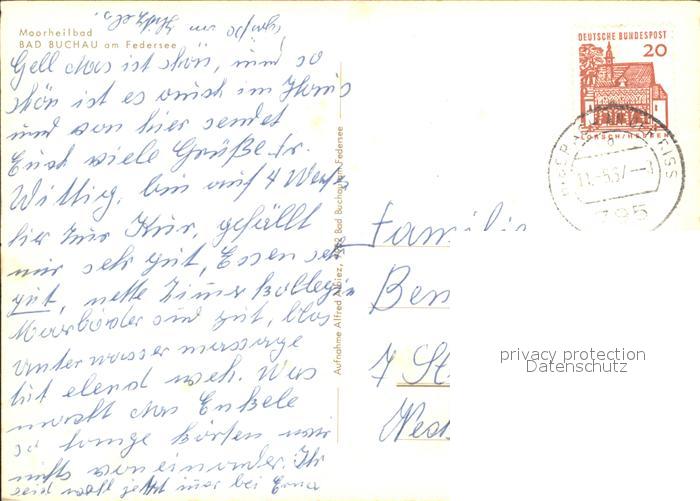 Moorheilbad
BAD BUCHAU am Federsee
Gell das ist schön, und so
schön ist es auch im Haus
und von hier sendet
Euch viele Grüße Fr.
Wittig. bin auf 4 Wochen
hier zur Kur, gefällt
mir sehr gut, Essen sehr
gut, nette Zimerkollegin
Moorbäder sind gut, blos
Unterwassermassage
tut elend weh. Was
macht das Enkele
so lange hörten wir
nichts von einander. Ihr
seid wohl jetzt imer bei Erna
Aufnahme Alfred Albiez, 7952 Bad Buchau am Federsee
DEUTSCHE BUNDESPOST
20
LORSCH/HESSEN
795
Familie
7 St
privacy protection
Datenschutz